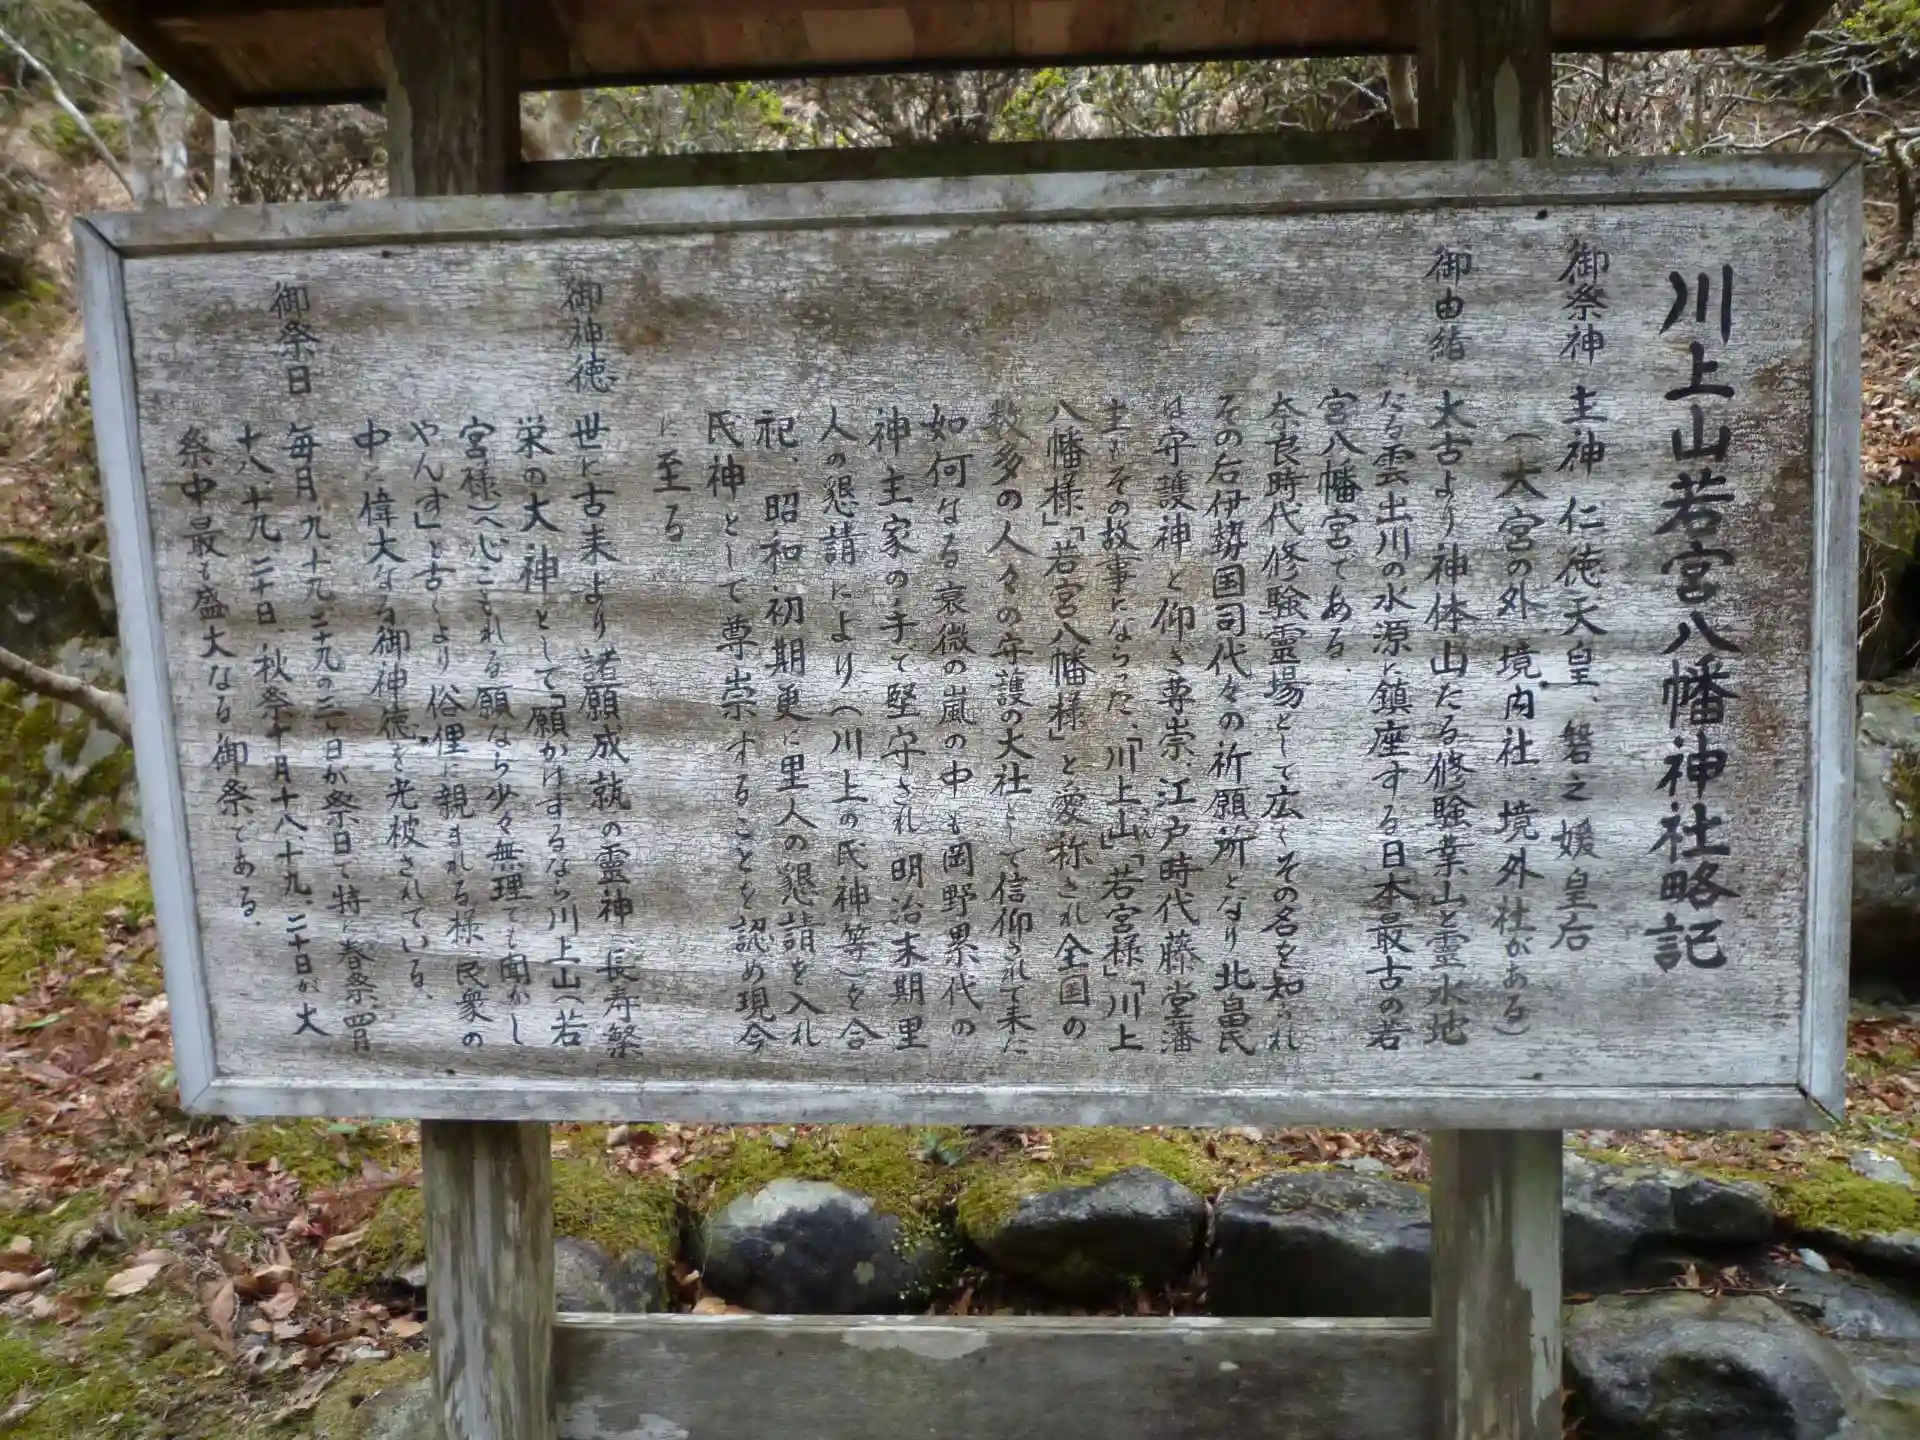 川上山若宮八幡神社略記
御祭神 主神 仁徳天皇、磐之媛皇后
(大宮の外、境内社、境外社がある)
御由緒 太古より神体山たる修験業山と霊水地
たる雲出川の水源に鎮座する日本最古の若
宮八幡宮である.
奈良時代修験霊場として広くその名を知られ
その后伊勢国司代々の祈願所となり北畠氏
は守護神と仰ぎ尊崇、江戸時代藤堂藩
主もその故事にならった、「川上山」「若宮様」「川上
八幡様」「若宮八幡様」と愛称され全国の
数多の人々の守護の大社として信仰されて来た
如何なる衰微の嵐の中も岡野累代の
神主家の手で堅守され明治末期里
人の懇請により(川上の氏神等)を合
祀、昭和初期更に里人の懇請を入れ
氏神として尊崇することを認め現今
に至る
御神徳 世に古来より諸願成就の霊神、長寿繁
栄の大神として「願かけするなら川上山(若
宮様)へ心こもれる願なら少々無理でも聞かし
やんす」と古くより俗俚に親まれる様民衆の
中に偉大なる御神徳を光被されている.
御祭日 毎月九、十九、二十九の三ヶ日が祭日で特に春祭、四月
十八、十九、二十日、秋祭十月十八、十九、二十日が大
祭中最も盛大なる御祭である.